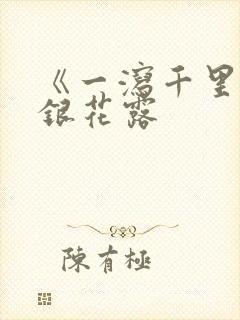 《一瀉千里
銀花露
陳有極